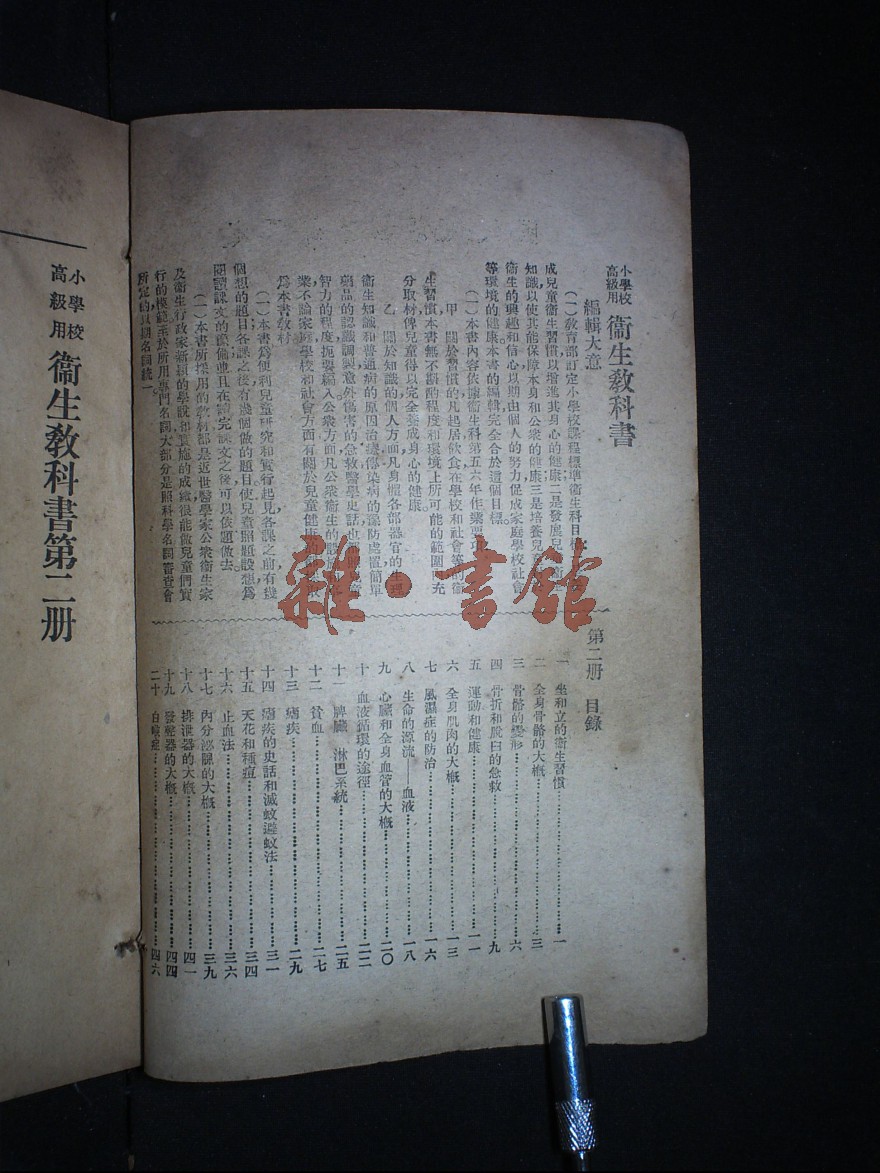 小學校
高級用
衞生敎科書
編輯大意
(一)敎育部訂定小學校課程標準衞生科目標
成兒童衞生習慣以增進其身心的健康二是發展兒
知識以使其能保障本身和公衆的健康三是培養兒童
衞生的興趣和信心以期由個人的努力促成家庭學校社會
等環境的健康本書的編輯完全合於這個目標
(一)本書內容依據衞生科第五六年作業
甲 關於習慣的凡起居飲食在學校和社會等的衞
生習慣本書無不斟酌程度和環境上所可能的範圍內充
分取材俾兒童得以完全養成身心的健康
乙 關於知識的個人方面凡身體各部器官的生理
衞生知識和普通病的原因治療傳染病的預防處置簡單
藥品的認識調製意外傷害的急救醫學史話也
智力的程度扼要編入公衆方面凡公衆衞生的設
業不論家庭學校和社會方面有關於兒童健康的
爲本書敎材
(一)本書爲便利兒童硏究和實行起見各課之前有幾
個想的題目各課之後有幾個做的題目使兒童照題設想爲
閱讀課文的預備並且在讀完課文之後可以依題做去
(一)本書所採用的敎材都是近世醫學家公衆衞生家
及衞生行政家新穎的學說和實施的成績很能做兒童們實
行的模範至於所用專門名詞大部分是照科學名詞審查會
所定的以期名詞統一
第二册 目錄
一 坐和立的衞生習慣 一
二 全身骨骼的大概 三
三 骨骼的變形 六
四 骨折和脫臼的急救 九
五 運動和健康 一一
六 全身肌肉的大概 一三
七 風濕症的防治 一六
八 生命的源流——血液 一八
九 心臟和全身血管的大概 二〇
十 血液循環的途徑 二二
十一 脾臟 淋巴系統 二五
十二 貧血 二七
十三 瘧疾 二九
十四 瘧疾的史話和滅蚊避蚊法 三一
十五 天花和種痘 三四
十六 止血法 三六
十七 內分泌腺的大概 三九
十八 排泄器的大概 四一
十九 發聲器的大概 四四
二十 白喉症 四六
小學校
高級用
衞生敎科書第二册
雜·書館